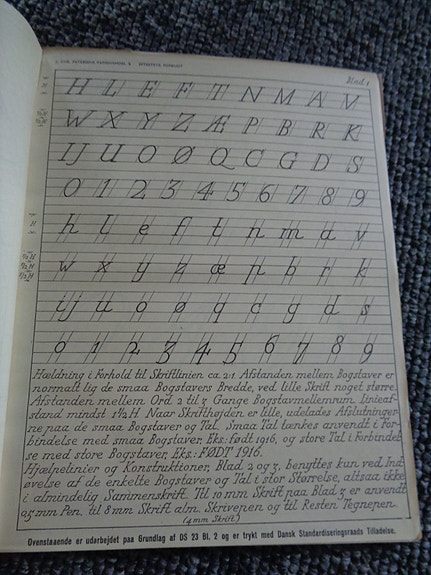 Blad 1
H L E F T N M A V
W X Y Z Æ P B R K
IJ U O Ø Q C G D S
0 1 2 3 4 5 6 7 8 9
h l e f t n m a v
w x y z æ p b r k
ij u o ø q c g d s
0 1 2 3 4 5 6 7 8 9
Hældning i Forhold til Skriftlinien ca. 2:1. Afstanden mellem Bogstaver er
normalt lig de smaa Bogstavers Bredde, ved lille Skrift noget større.
Afstanden mellem Ord 2 til 3 Gange Bogstavmellemrum. Linieaf-
stand mindst 1½H. Naar Skrifthøjden er lille, udelades Afslutninger-
ne paa de smaa Bogstaver og Tal. Smaa Tal tænkes anvendt i For-
bindelse med smaa Bogstaver, Eks.: født 1916, og store Tal i Forbindel-
se med store Bogstaver, Eks.: FØDT 1916.
Hjælpelinier og Konstruktioner, Blad 2 og 3, benyttes kun ved Ind-
øvelse af de enkelte Bogstaver og Tal i stor Størrelse, altsaa ikke
i almindelig Sammenskrift. Til 10 mm Skrift paa Blad 3 er anvendt
0,5 mm Pen, til 8 mm Skrift alm. Skrivepen og til Resten Tegnepen.
(4 mm Skrift)
Ovenstaaende er udarbejdet paa Grundlag af DS 23 Bl. 2 og er trykt med Dansk Standardiseringsraads Tilladelse.